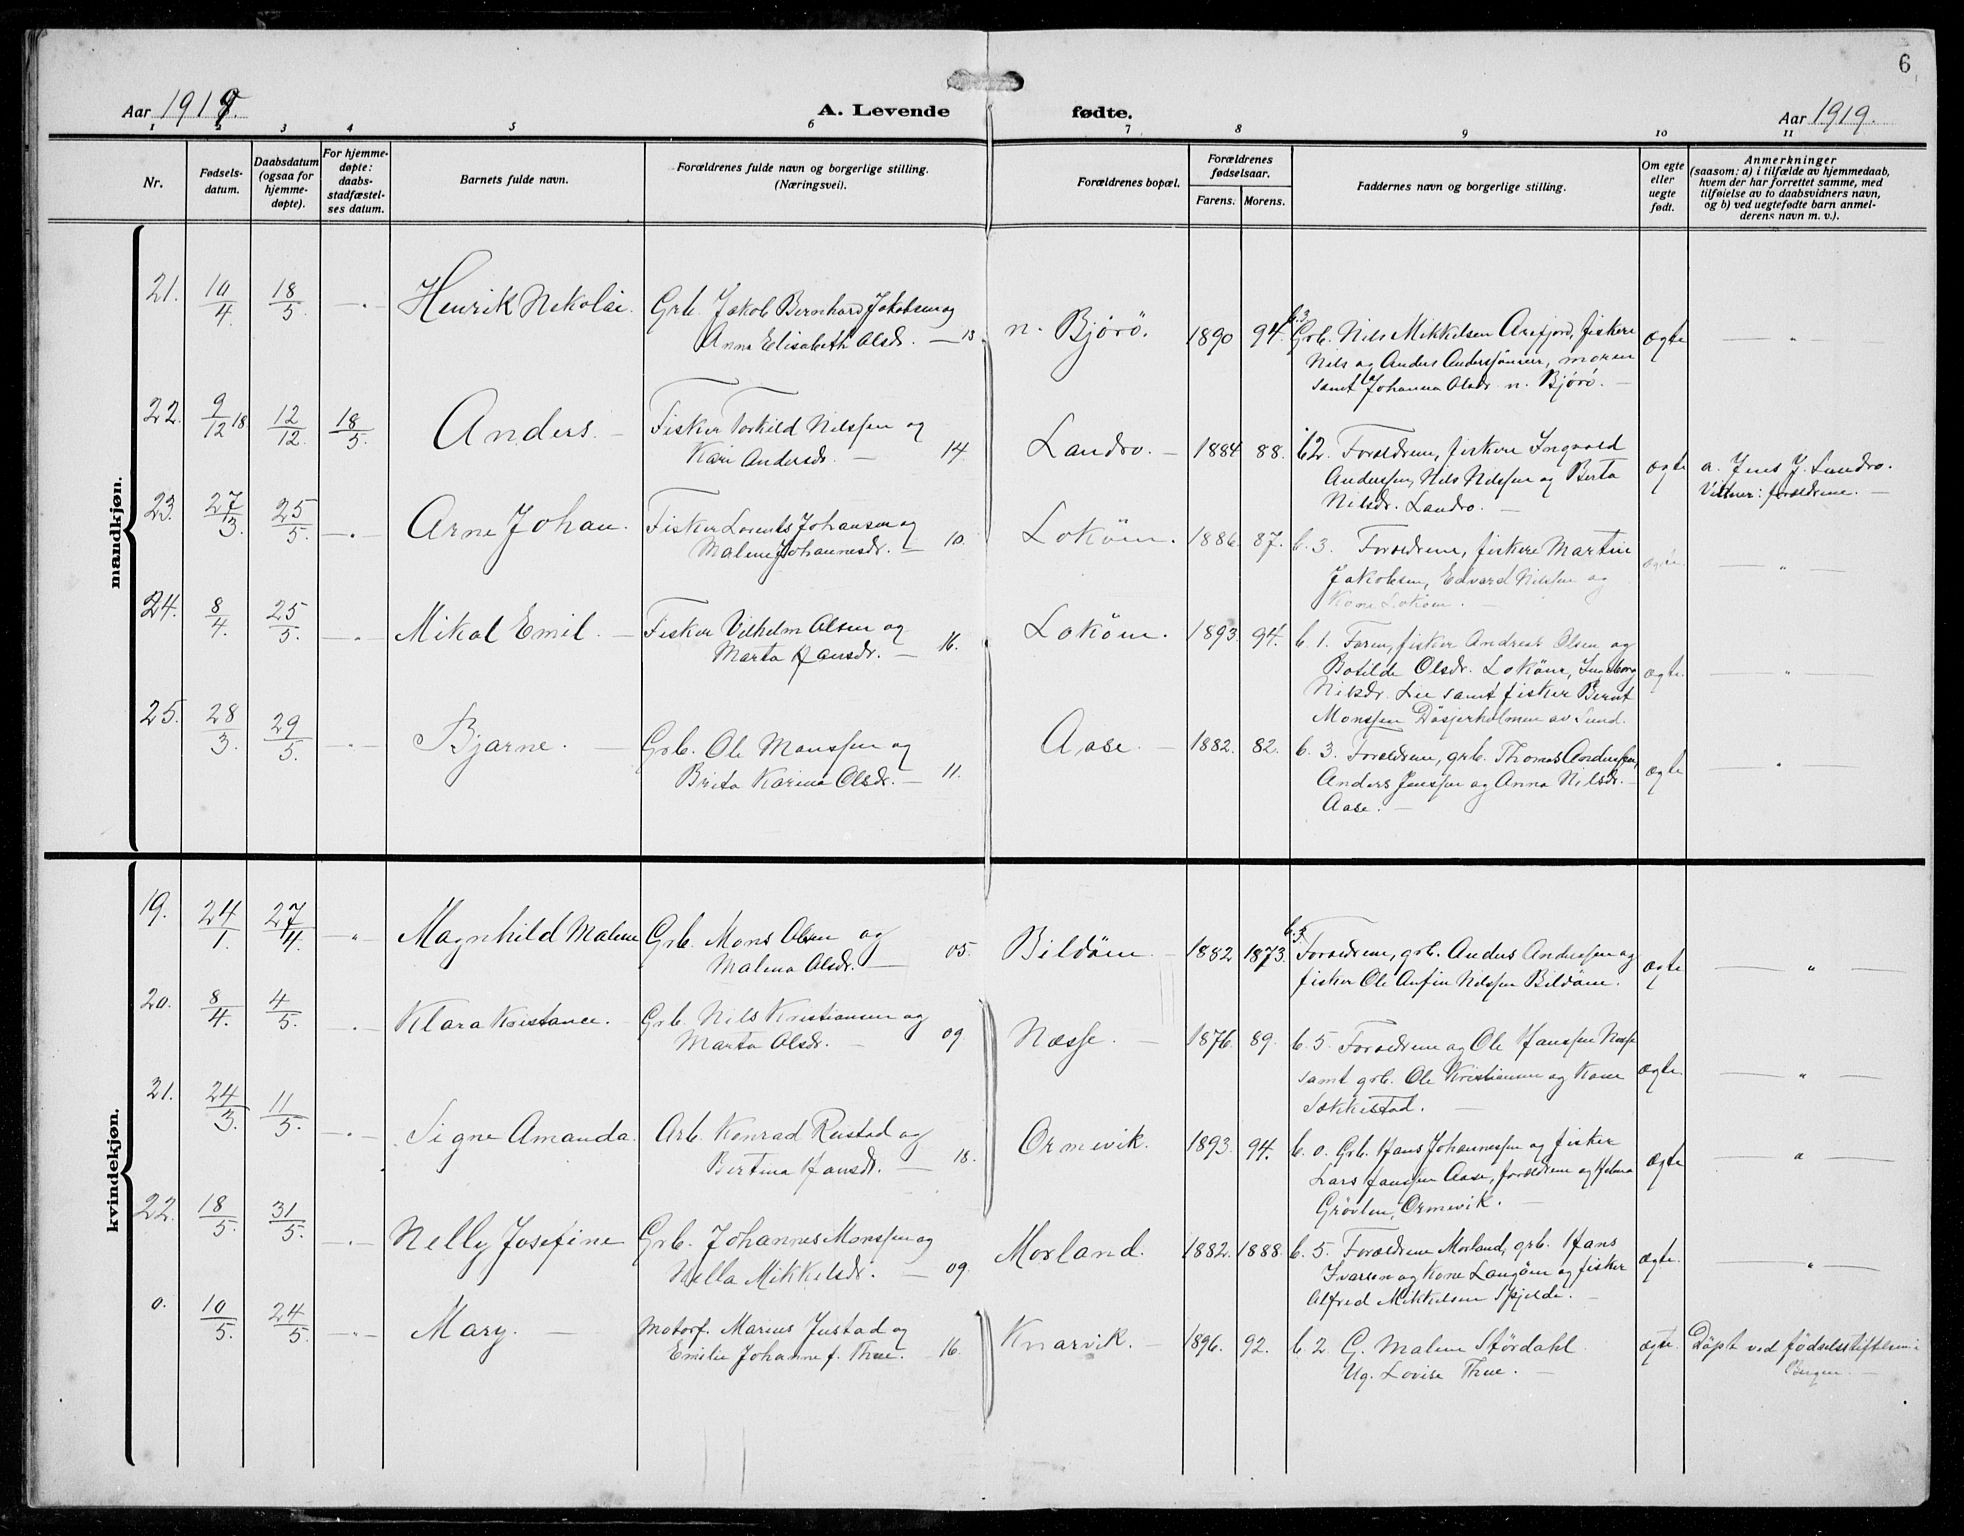 6
Aar 1919.
A. Levende fødte.
Aar 1919.
1 2 3 4 5 6 7 8 9 10 11
Nr.
Fødsels-
datum.
Daabsdatum
(ogsaa for
hjemme-
døpte).
For hjemme-
døpte:
daabs-
stadfæstel-
ses datum.
Barnets fulde navn.
Forældrenes fulde navn og borgerlige stilling.
(Næringsvei).
Forældrenes bopæl.
Forældrenes
fødselsaar.
Farens. Morens.
Faddernes navn og borgerlige stilling.
Om egte
eller
uegte
født.
Anmerkninger
(saasom: a) i tilfælde av hjemmedaab,
hvem der har forrettet samme, med
tilføielse av to daabsvidners navn,
og b) ved uegtefødte barn anmel-
derens navn m. v.).
mandkjøn.
21. 10/4 18/5 — " — Henrik Nikolai. Grb. Jakob Bernhard Jakobsen og
Anna Elisabeth Olsdr. — 13.
n. Bjørö. 1890 94. b. 3
Grb. Nils Mikkelsen Arefjord, fiskere
Nils og Anders Anderssönner, moren
samt Johanna Olsdr. n. Bjørö. —
ægte — " —
22. 9/12 18 12/12. 18/5. Anders. — Fisker Torkild Nilssen og
Kari Andersdr. — 14.
Landro. — 1884 88. b2. Forældrene, fiskere Ingvald
Anderssen, Nils Nilssen og Berta
Nilsdr. Landro. —
ægte a. Jens J. Landro.
Vidner: forældrene. —
23. 27/3. 25/5. — " — Arne Johan. Fisker Lorents Johansen og
Malene Johannesdr. — 10.
Loköen. 1886. 87. b. 3. Forældrene, fiskere Martin
Jakobsen, Edvard Nilssen og
Kone Loköen. —
ægte — " —
24. 8/4. 25/5. — " — Mikal Emil. — Fisker Vilhelm Olsen og
Marta Hansdr. — 16.
Loköen. 1893. 94. b. 1. Faren, fisker Andreas Olsen og
Botilde Olsdr. Loköen, Ingeborg
Nilsdr. Lie samt fisker Bernt
Monssen Døsjerholmen av Sund.
ægte. — " —
25. 28/3. 29/5. — " — Bjarne. — Grb. Ole Monssen og
Brita Karina Olsdr. — 11.
Aase. — 1882. 82. b. 3. Forældrene, grb. Thomas Anderssen,
Anders Jenssen og Anna Nilsdr. —
Aase. —
ægte — " —
kvindekjøn.
19. 24/1. 27/4. — " — Magnhild Malene Grb. Mons Olsen og
Malena Olsdr. — 05.
Bildöen. — 1882 1873. b. 3
Forældrene, grb. Anders Anderssen og
fisker Ole Anfin Nilssen Bildöen.
ægte — " —
20. 8/4. 4/5. — " — Klara Kristance. — Grb. Nils Kristiansen og
Marta Olsdr. — 09.
Næsse. — 1876. 89. b. 5. Forældrene og Ole Hanssen Næsse
samt grb. Ole Kristiansen og Kone
Sækkestad. —
ægte. — " —
21. 24/3. 11/5. — " — Signe Amanda. Arb. Konrad Reistad og
Bertina Hansdr. — 18.
Ormevik. 1893. 94. b. 0. Grb. Hans Johannessen og fisker
Lars Hanssen Aase, forældrene og Helma
Grövlen, Ormevik. —
ægte — " —
22. 18/5. 31/5. — " — Nelly Josefine Grb. Johannes Monssen og
Nella Mikkelsdr. — 09.
Morland. 1882. 1888. b. 5. Forældrene Morland, grb. Hans
Ivarsen og Kone Langöen og fisker
Alfred Mikkelsen Spjelde. —
ægte. — " —
0. 10/5. 24/5. — " — Mary. — Motorf. Marius Justad og
Emilie Johanne f. Thue. 16.
Knarvik. — 1896. 92. b. 2. G. Malene Størdahl
Ug. Lovise Thue. —
ægte. Döpt ved fødselsstiftelsen i
Bergen. —